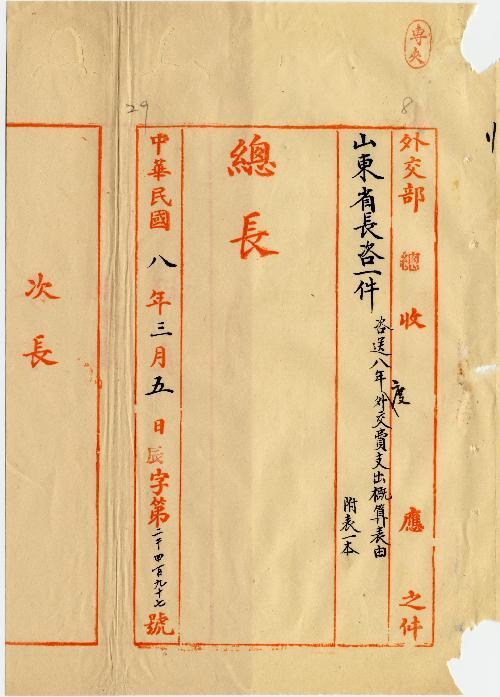 專夾
8
外交部總收應之件
山東省長咨一件
咨送八年度外交費支出概算表由
附表一本
總長
29
中華民國八年三月五日辰字第二千四百九十七號
次長